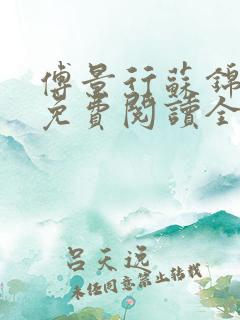 傅景行蘇錦
免費閱讀全
呂天逸
未經同意禁止轉載